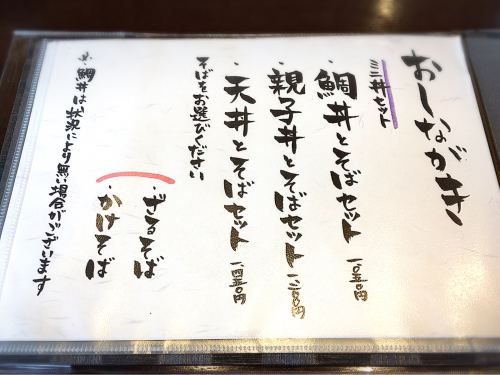 おしながき
ミニ丼セット
・鯛丼とそばセット 一、〇五〇円
・親子丼とそばセット 一、二五〇円
・天丼とそばセット 一、四五〇円
そばをお選びください
・ざるそば
・かけそば
※鯛丼は状況により無い場合がございます